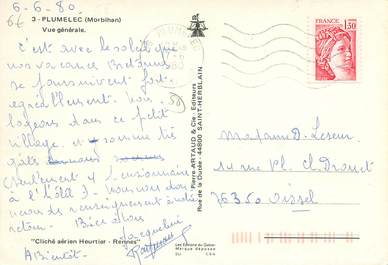 5-6-80.
3 - PLUMELEC (Morbihan)
Vue générale.
C'est avec le soleil que
nos vacances Bretonnes
se poursuivent fort
agréablement. Nous
logeons dans ce petit
village. et sommes très
gâtés
(seulement 4 pensionnaires
à l'hôtel) - Nous vous
nous
retour. Bien à vous
Jacqueline
A Bientôt.
"Cliché aérien Heurtier - Rennes"
Pierre ARTAUD & Cie - Editeurs
Rue de la Dutée - 44800 SAINT-HERBLAIN
Les Editions du Gabier
Marque déposée
FRANCE
1,30
Madame D. Leseur
14 rue Ph. Ch. Drouet
76350 Oissel